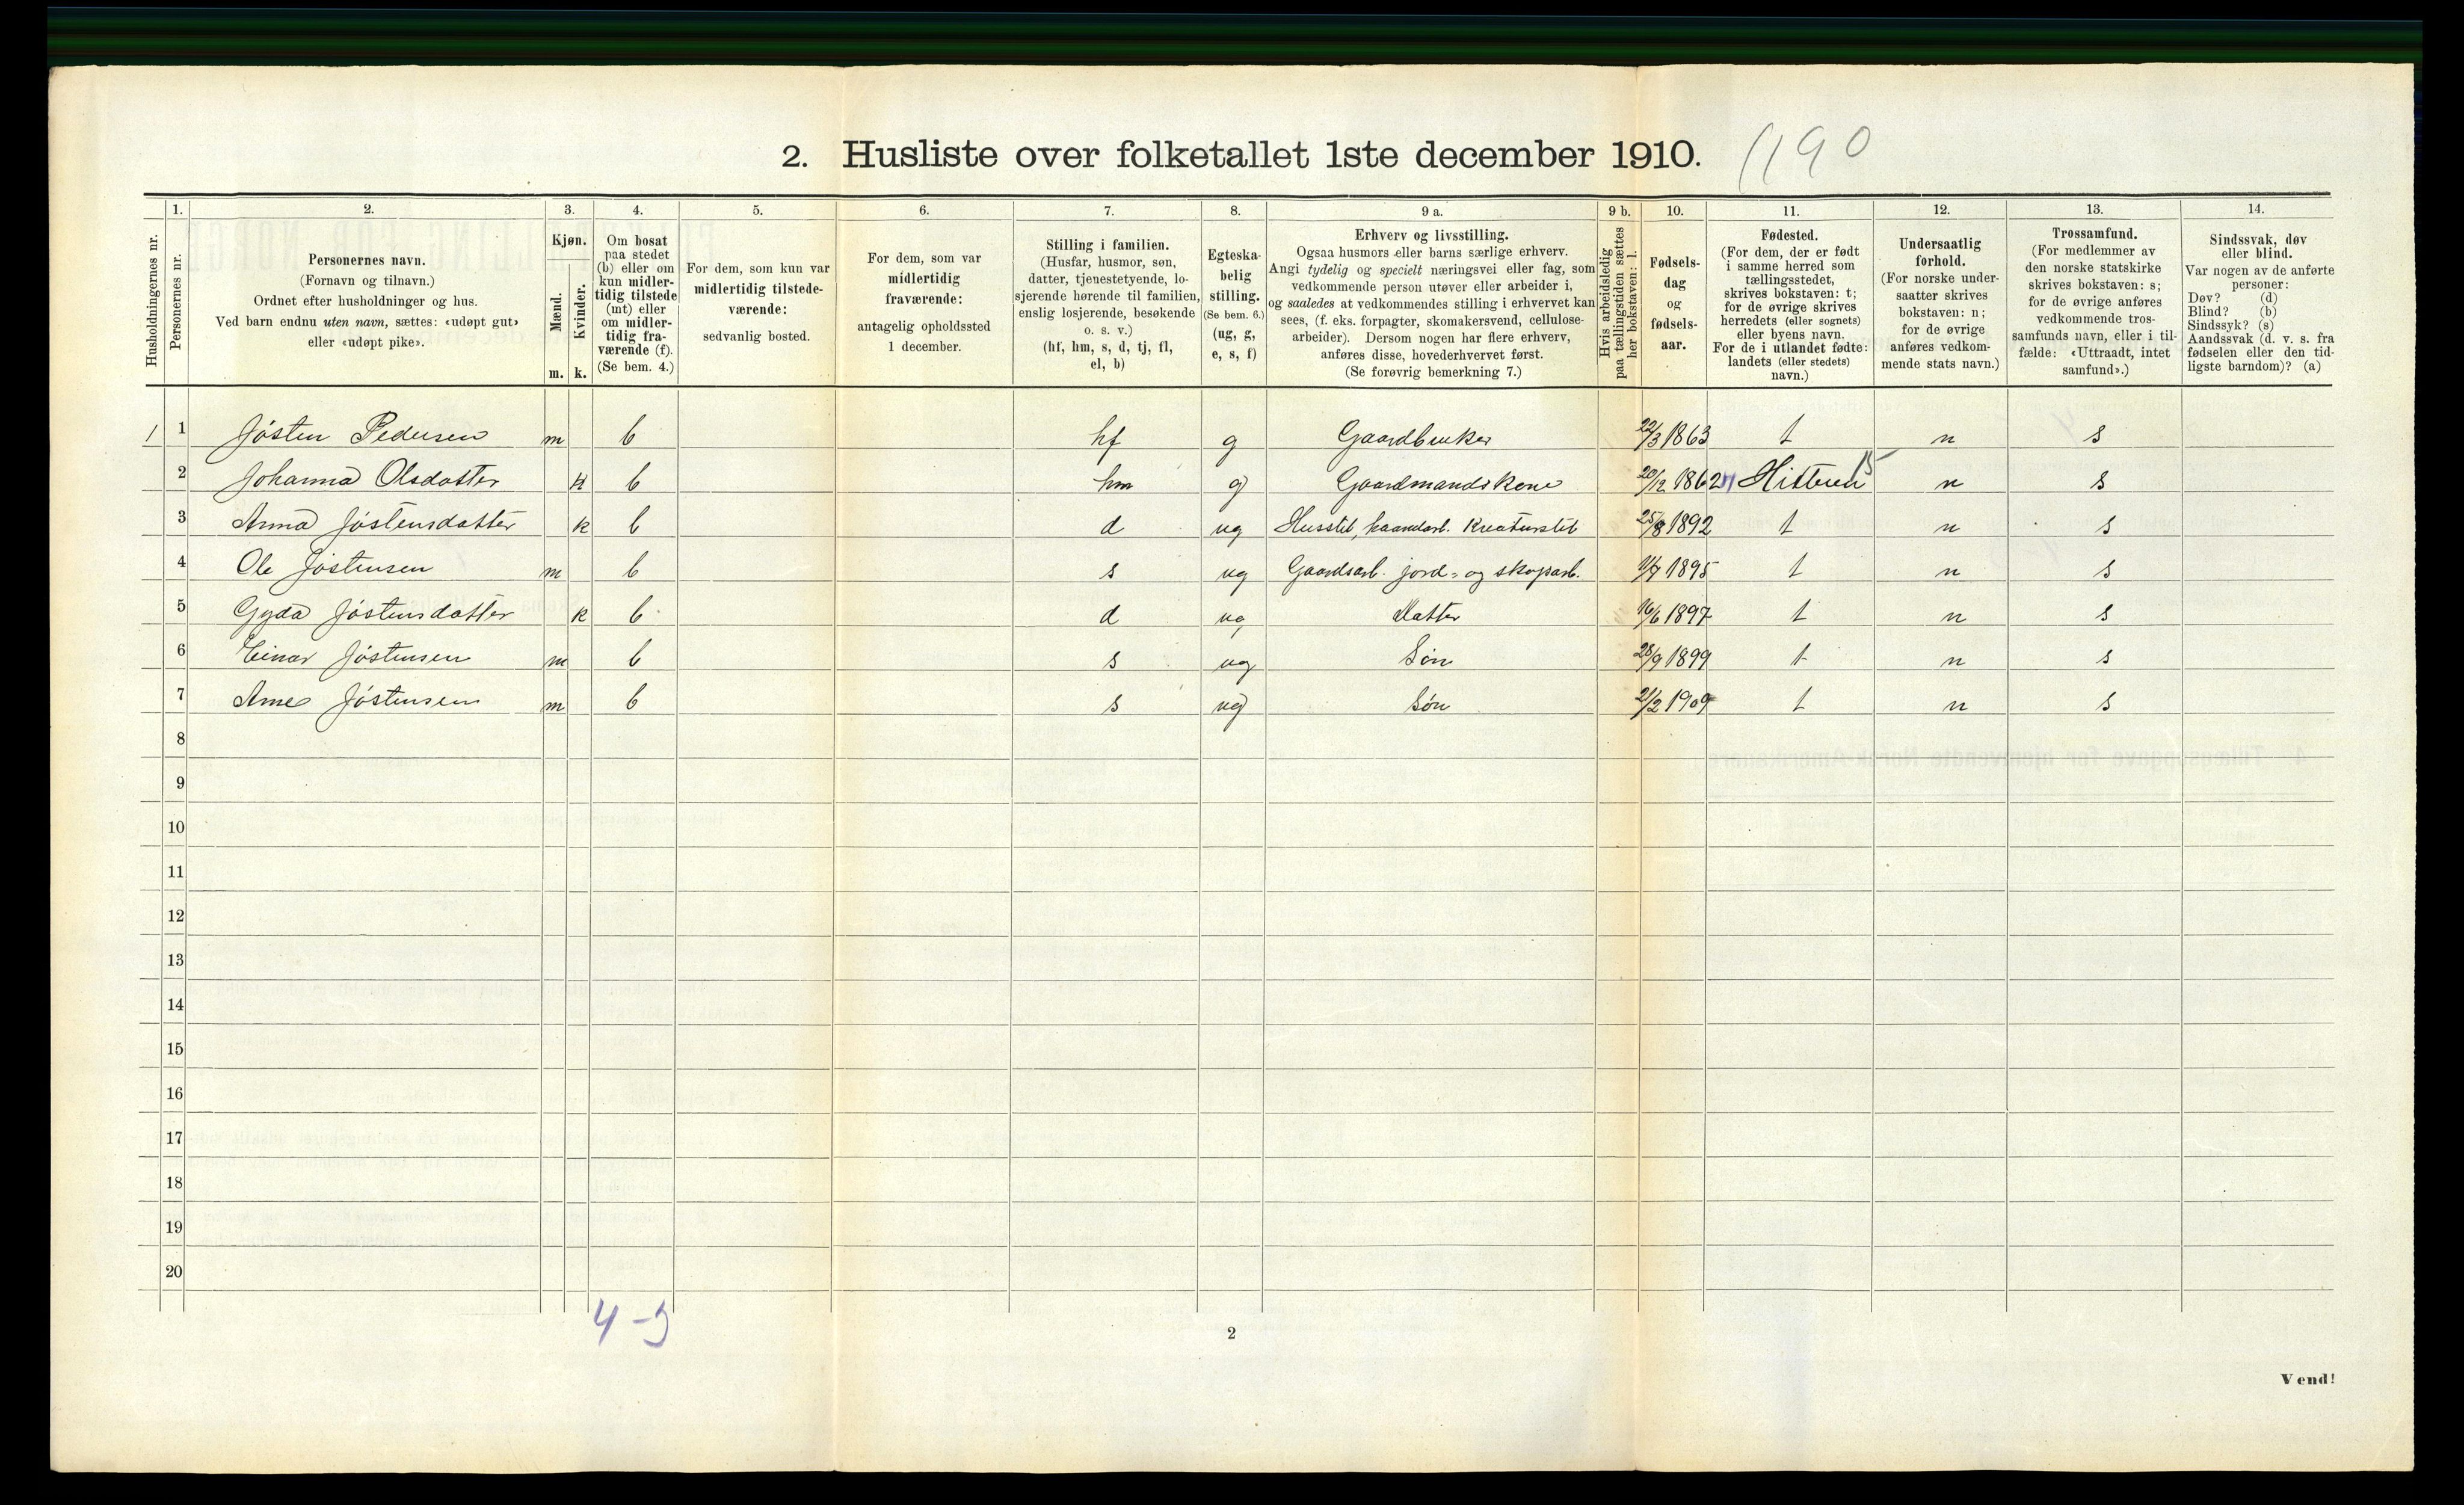 2. Husliste over folketallet 1ste december 1910. 1190
Husholdningernes nr.
1.
Personernes nr.
2.
Personernes navn.
(Fornavn og tilnavn.)
Ordnet efter husholdninger og hus.
Ved barn endnu uten navn, sættes: «udøpt gut»
eller «udøpt pike».
3.
Kjøn.
Mænd.
Kvinder.
m. k.
4.
Om bosat
paa stedet
(b) eller om
kun midler-
tidig tilstede
(mt) eller
om midler-
tidig fra-
værende (f).
(Se bem. 4.)
5.
For dem, som kun var
midlertidig tilstede-
værende:
sedvanlig bosted.
6.
For dem, som var
midlertidig
fraværende:
antagelig opholdssted
1 december.
7.
Stilling i familien.
(Husfar, husmor, søn,
datter, tjenestetyende, lo-
sjerende hørende til familien,
enslig losjerende, besøkende
o. s. v.)
(hf, hm, s, d, tj, fl,
el, b)
8.
Egteska-
belig
stilling.
(Se bem. 6.)
(ug, g,
e, s, f)
9 a.
Erhverv og livsstilling.
Ogsaa husmors eller barns særlige erhverv.
Angi tydelig og specielt næringsvei eller fag, som
vedkommende person utøver eller arbeider i,
og saaledes at vedkommendes stilling i erhvervet kan
sees, (f. eks. forpagter, skomakersvend, cellulose-
arbeider). Dersom nogen har flere erhverv,
anføres disse, hovederhvervet først.
(Se forøvrig bemerkning 7.)
9 b.
Hvis arbeidsledig
paa tællingstiden sættes
her bokstaven: l.
10.
Fødsels-
dag
og
fødsels-
aar.
11.
Fødested.
(For dem, der er født
i samme herred som
tællingsstedet,
skrives bokstaven: t;
for de øvrige skrives
herredets (eller sognets)
eller byens navn.
For de i utlandet fødte:
landets (eller stedets)
navn.)
12.
Undersaatlig
forhold.
(For norske under-
saatter skrives
bokstaven: n;
for de øvrige
anføres vedkom-
mende stats navn.)
13.
Trossamfund.
(For medlemmer av
den norske statskirke
skrives bokstaven: s;
for de øvrige anføres
vedkommende tros-
samfunds navn, eller i til-
fælde: «Uttraadt, intet
samfund».)
14.
Sindssvak, døv
eller blind.
Var nogen av de anførte
personer:
Døv? (d)
Blind? (b)
Sindssyk? (s)
Aandssvak (d. v. s. fra
fødselen eller den tid-
ligste barndom)? (a)
1 1 Jósten Pedersen m b hf g Gaardbruker 22/3 1863 t n s
15
2 Johanna Olsdatter k b hm g Gaardmandskone 20/12 1862 Hitteren n s
3 Anna Jóstensdatter k b d ug Husstel, haandarb. Kreaturstel 25/8 1892 t n s
4 Ole Jóstensen m b s ug Gaardsarb. jord- og skogsarb. 1/7 1895 t n s
5 Gyda Jóstensdatter k b d ug Datter 16/6 1897 t n s
6 Einar Jóstensen m b s ug Søn 28/9 1899 t n s
7 Arne Jóstensen m b s ug Søn 21/2 1909 t n s
8
9
10
11
12
13
14
15
16
17
18
19
20
4 - 3
2
Vend!